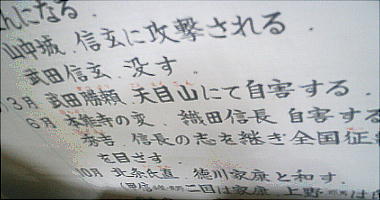 んになる
山中城 信玄に攻撃される
武田信玄 没す
3月 武田勝頼 天目山にて自害する
6月 本能寺の変 織田信長 自害する
秀吉 信長の志を継ぎ全国征
を目ざす
10月 北条氏直 徳川家康と和す
二国は家康 上野